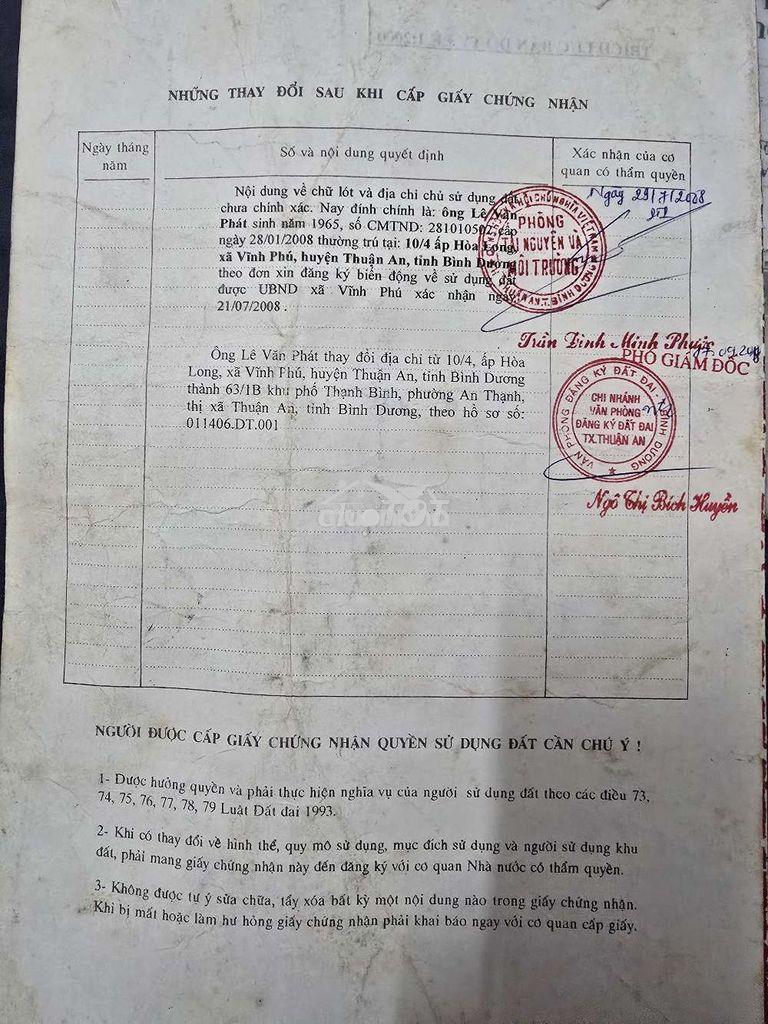 NHỮNG THAY ĐỔI SAU KHI CẤP GIẤY CHỨNG NHẬN
Ngày tháng năm
Số và nội dung quyết định
Xác nhận của cơ quan có thẩm quyền
Nội dung về chữ lót và địa chỉ chủ sử dụng đất
chưa chính xác. Nay đính chính là: ông Lê Văn
Phát sinh năm 1965, số CMTND: 281010502 cấp
ngày 28/01/2008 thường trú tại: 10/4 ấp Hòa Long,
xã Vĩnh Phú, huyện Thuận An, tỉnh Bình Dương
theo đơn xin đăng ký biến động về sử dụng đất
được UBND xã Vĩnh Phú xác nhận ngày
21/07/2008 .
Ngày 29/7/2008
PHÒNG
TÀI NGUYÊN VÀ
MÔI TRƯỜNG
Trần Đình Minh Phước
Ông Lê Văn Phát thay đổi địa chỉ từ 10/4, ấp Hòa
Long, xã Vĩnh Phú, huyện Thuận An, tỉnh Bình Dương
thành 63/1B khu phố Thạnh Bình, phường An Thạnh,
thị xã Thuận An, tỉnh Bình Dương, theo hồ sơ số:
011406.DT.001
PHÓ GIÁM ĐỐC
VĂN PHÒNG ĐĂNG KÝ ĐẤT ĐAI BÌNH DƯƠNG
CHI NHÁNH
VĂN PHÒNG
ĐĂNG KÝ ĐẤT ĐAI
TX.THUẬN AN
Ngô Thị Bích Huyền
NGƯỜI ĐƯỢC CẤP GIẤY CHỨNG NHẬN QUYỀN SỬ DỤNG ĐẤT CẦN CHÚ Ý !
1- Được hưởng quyền và phải thực hiện nghĩa vụ của người sử dụng đất theo các điều 73,
74, 75, 76, 77, 78, 79 Luật Đất đai 1993.
2- Khi có thay đổi về hình thể, quy mô sử dụng, mục đích sử dụng và người sử dụng khu
đất, phải mang giấy chứng nhận này đến đăng ký với cơ quan Nhà nước có thẩm quyền.
3- Không được tự ý sửa chữa, tẩy xóa bất kỳ một nội dung nào trong giấy chứng nhận.
Khi bị mất hoặc làm hư hỏng giấy chứng nhận phải khai báo ngay với cơ quan cấp giấy.